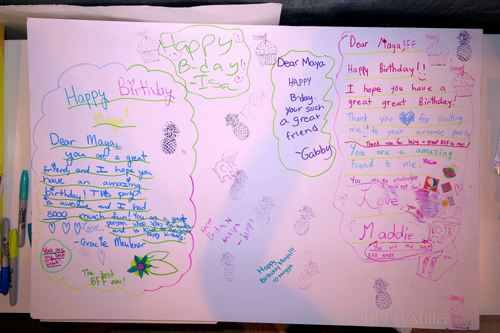 Happy
B-day!
Isa
Happy Birthday
Maya!
Dear Maya,
you are a great
friend, and I hope you
have an amazing
birthday! This party
is awesome, and I had
sooo much fun! You are a great
person who was a
and is kind
Happy birthday.
~Gracie
You are
my best
friend
The best
BFF ever!
Dear Maya
HAPPY
B-day.
Your such
a great
friend
~Gabby
Happy
B-day
Maya
Happy
Birthday Maya!!!
Dear Maya!BFF
Happy Birthday!!
I hope you have a
great great Birthday!
Thank you for inviting
me!! to your awesome party
Thank you for being a great BFF to me!
You are a amazing
Friend to me.
Love
Maddie
You are the best
BFF ever
2019 H Miller